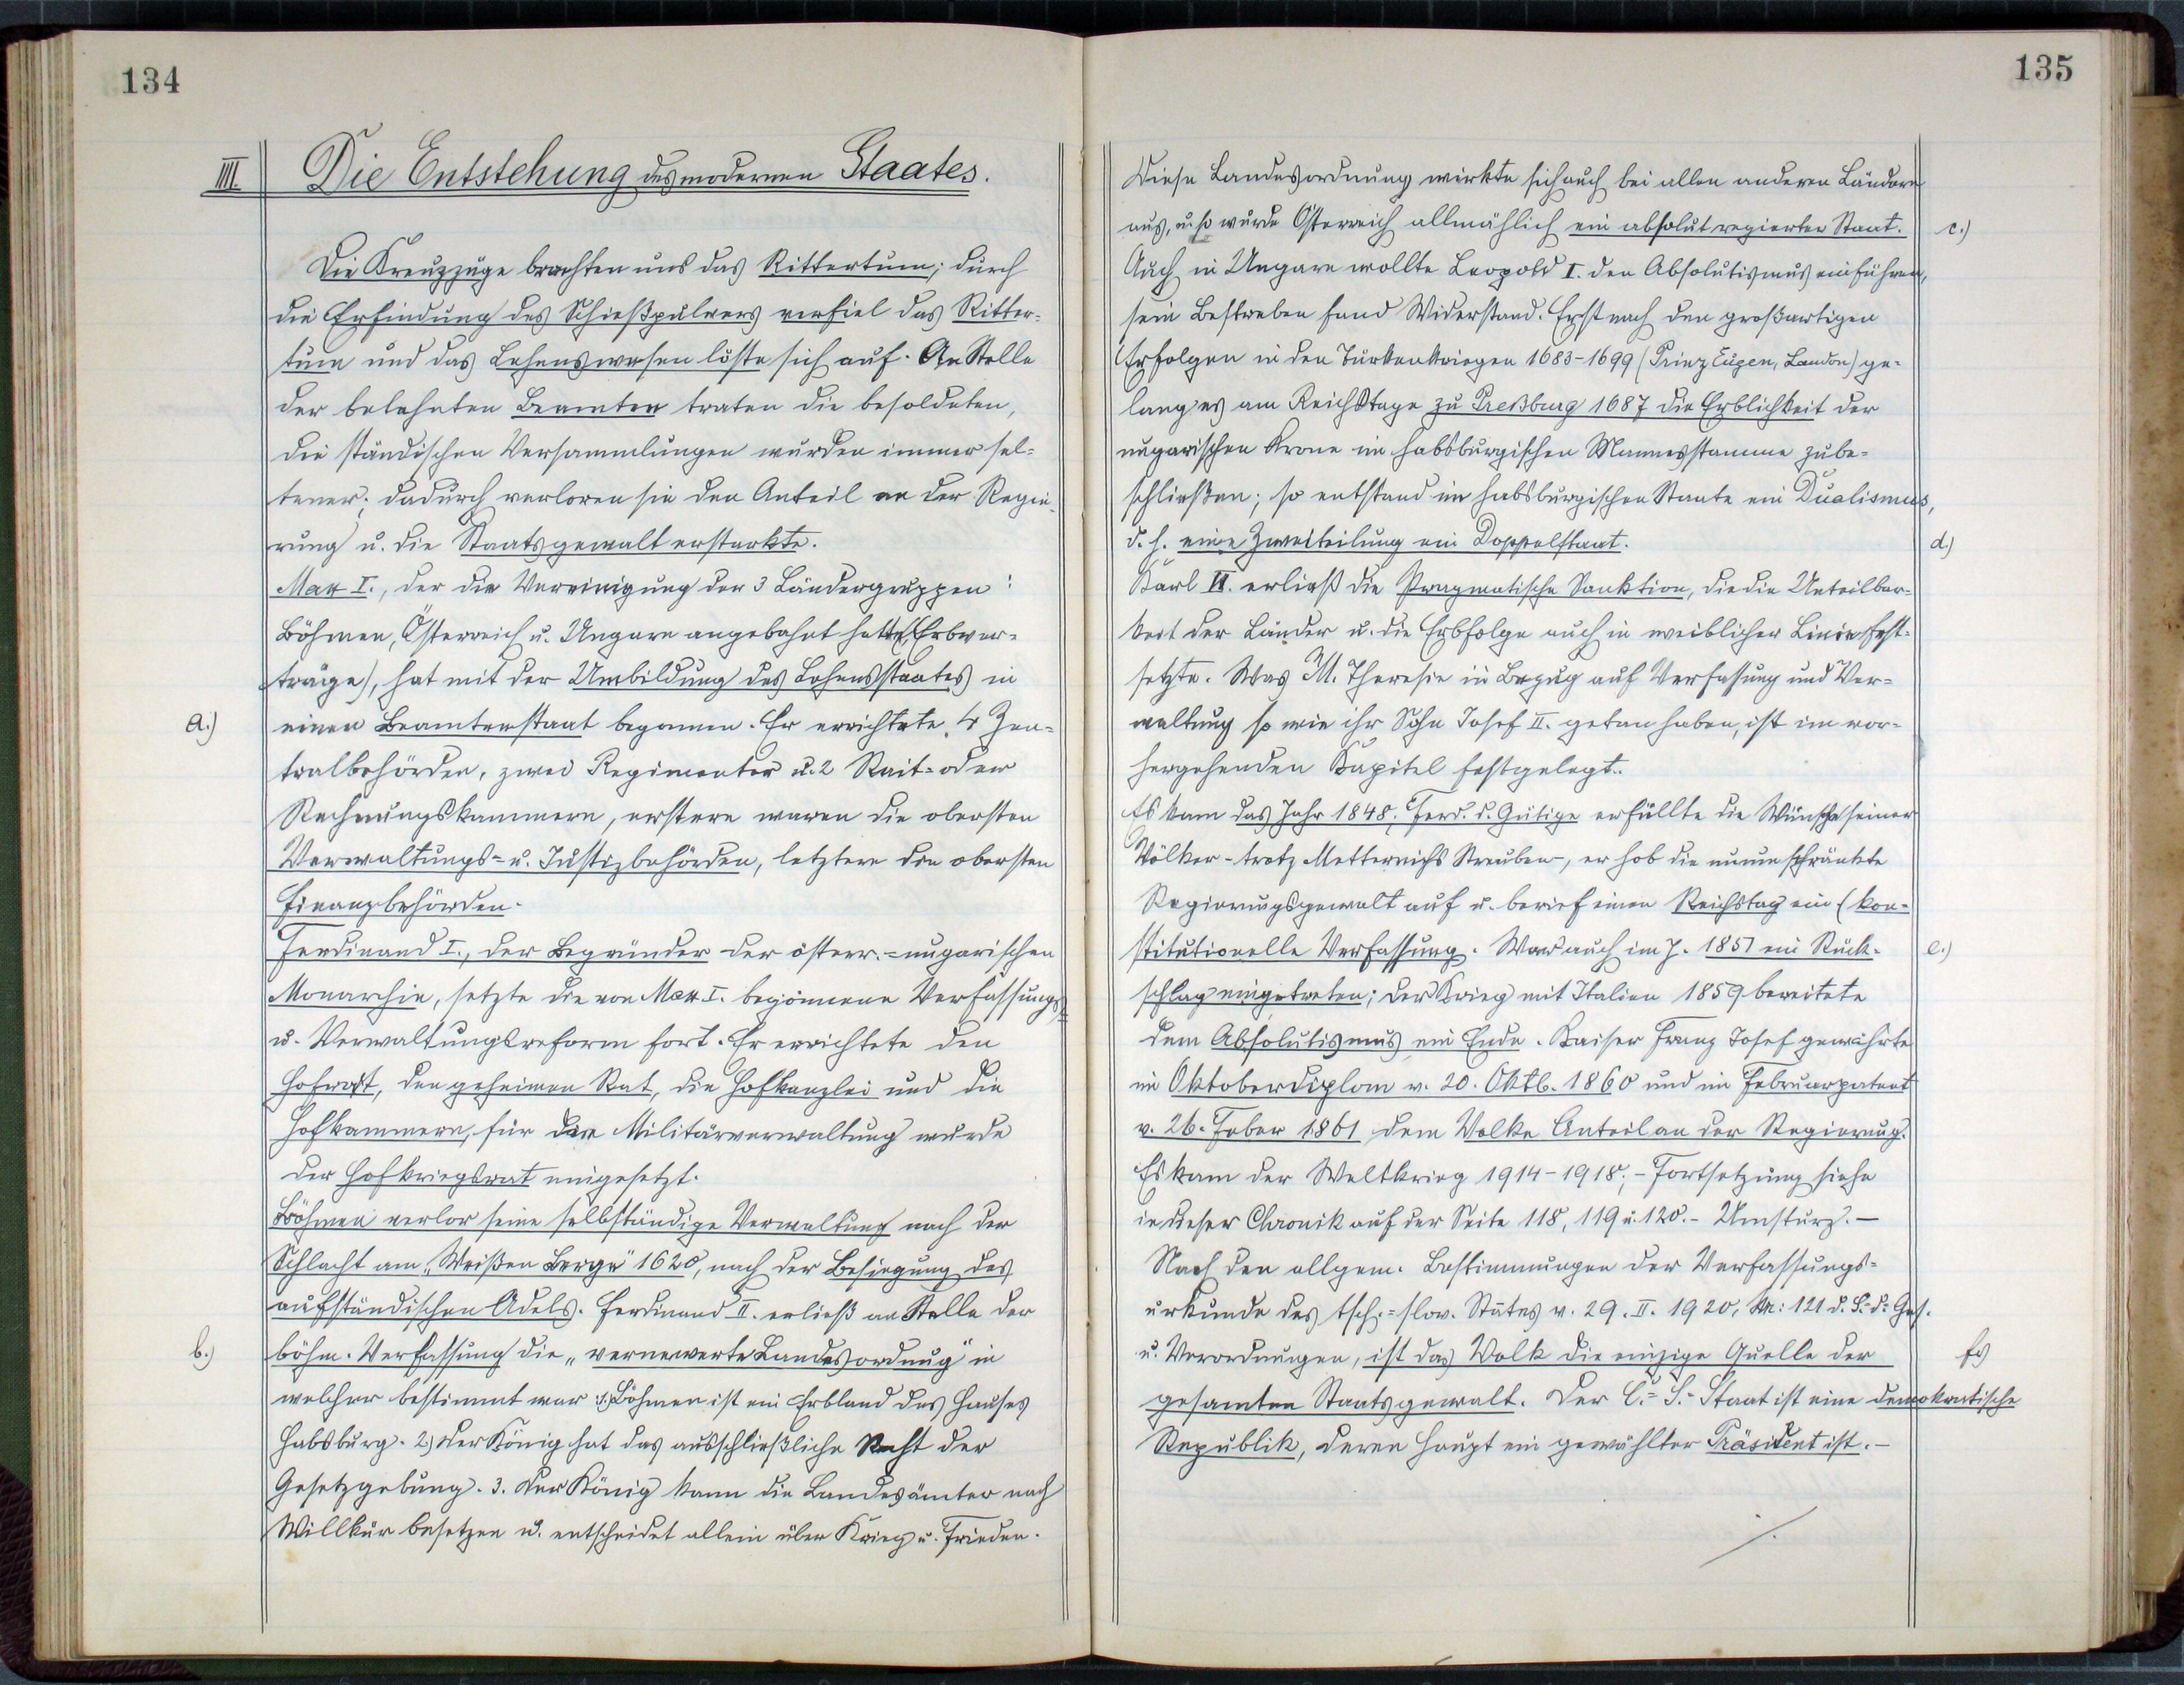 134
III. Die Entstehung des modernen Staates.
Die Kreuzzüge brachten uns das Rittertum; durch
die Erfindung des Schießpulvers verfiel das Ritter-
tum und das Lehenswesen löste sich auf. An Stelle
der belehnten Beamten traten die besoldeten,
die ständischen Versammlungen wurden immer sel-
tener; dadurch verloren sie den Anteil an der Regie-
rung u. die Staatsgewalt erstarkte.
Max I., der die Vereinigung der 3 Ländergruppen:
Böhmen, Österreich u. Ungarn angebahnt hatte (Erbver-
träge), hat mit der Umbildung des Lehensstaates in
a.) einen Beamtenstaat begonnen. Er errichtete 4 Zen-
tralbehörden, zwei Regimenter u. 2 Rait- oder
Rechnungskammern, erstere waren die obersten
Verwaltungs- u. Justizbehörden, letztere die obersten
Finanzbehörden.
Ferdinand I., der Begründer der österr.-ungarischen
Monarchie, setzte die von Max I. begonnene Verfassungs-
u. Verwaltungsreform fort. Er errichtete den
Hofrat, den geheimen Rat, die Hofkanzlei und die
Hofkammern, für die Militärverwaltung wurde
der Hofkriegsrat eingesetzt.
Böhmen verlor seine selbständige Verwaltung nach der
Schlacht am „Weißen Berge" 1620, nach der Besiegung des
aufständischen Adels. Ferdinand II. erließ an Stelle der
b.) böhm. Verfassung die „vernewerte Landesordnung" in
welcher bestimmt war: 1.) Böhmen ist ein Erbland des Hauses
Habsburg. 2.) Der König hat das ausschließliche Recht der
Gesetzgebung. 3. Der König kann die Landesämter nach
Willkür besetzen u. entscheidet allein über Krieg u. Frieden.
135
Diese Landesordnung wirkte sich auch bei allen anderen Ländern
aus, u. so wurde Österreich allmählich ein absolut regierter Staat. c.)
Auch in Ungarn wollte Leopold I. den Absolutismus einführen,
sein Bestreben fand Widerstand. Erst nach den großartigen
Erfolgen in den Türkenkriegen 1683-1699 (Prinz Eugen, Laudon) ge-
lang es am Reichstage zu Preßburg 1687 die Erblichkeit der
ungarischen Krone im habsburgischen Mannesstamme zu be-
schließen; so entstand im habsburgischen Staate ein Dualismus,
d. h. eine Zweiteilung ein Doppelstaat. d.)
Karl VI. erließ die Pragmatische Sanktion, die die Unteilbar-
keit der Länder u. die Erbfolge auch in weiblicher Linie fest-
setzte. Was M. Theresie in Bezug auf Verfassung und Ver-
waltung so wie ihr Sohn Josef II. getan haben, ist im vor-
hergehenden Kapitel festgelegt.
Es kam das Jahr 1848. Ferd. d. Gütige erfüllte die Wünsche seiner
Völker - trotz Metternichs Streuben -, er hob die unumschränkte
Regierungsgewalt auf u. berief einen Reichstag ein (kon-
stitutionelle Verfassung. War auch im J. 1851 ein Rück- e.)
schlag eingetreten; der Krieg mit Italien 1859 bereitete
dem Absolutismus ein Ende. Kaiser Franz Josef gewährte
im Oktoberdiplom v. 20. Oktb. 1860 und im Februarpatent
v. 26. Feber 1861 dem Volke Anteil an der Regierung.
Es kam der Weltkrieg 1914-1918; - Fortsetzung siehe
in dieser Chronik auf der Seite 118, 119 u. 120. - Umsturz. -
Nach den allgem. Bestimmungen der Verfassungs-
urkunde des tsch.-slow. States v. 29. II. 1920, Nr: 121 d. S. d. Ges.
u. Verordnungen, ist das Volk die einzige Quelle der f.)
gesamten Staatsgewalt. Der Č.-S.-Staat ist eine demokratische
Republik, deren Haupt ein gewählter Präsident ist. -
./.